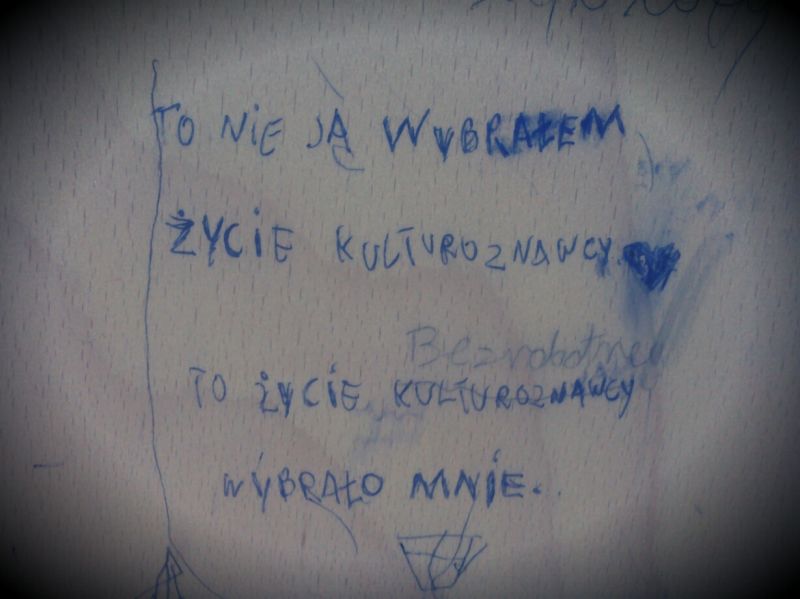 TO NIE JA WYBRAŁEM
ŻYCIE KULTUROZNAWCY.
Bezrobotnego
TO ŻYCIE KULTUROZNAWCY
WYBRAŁO MNIE.